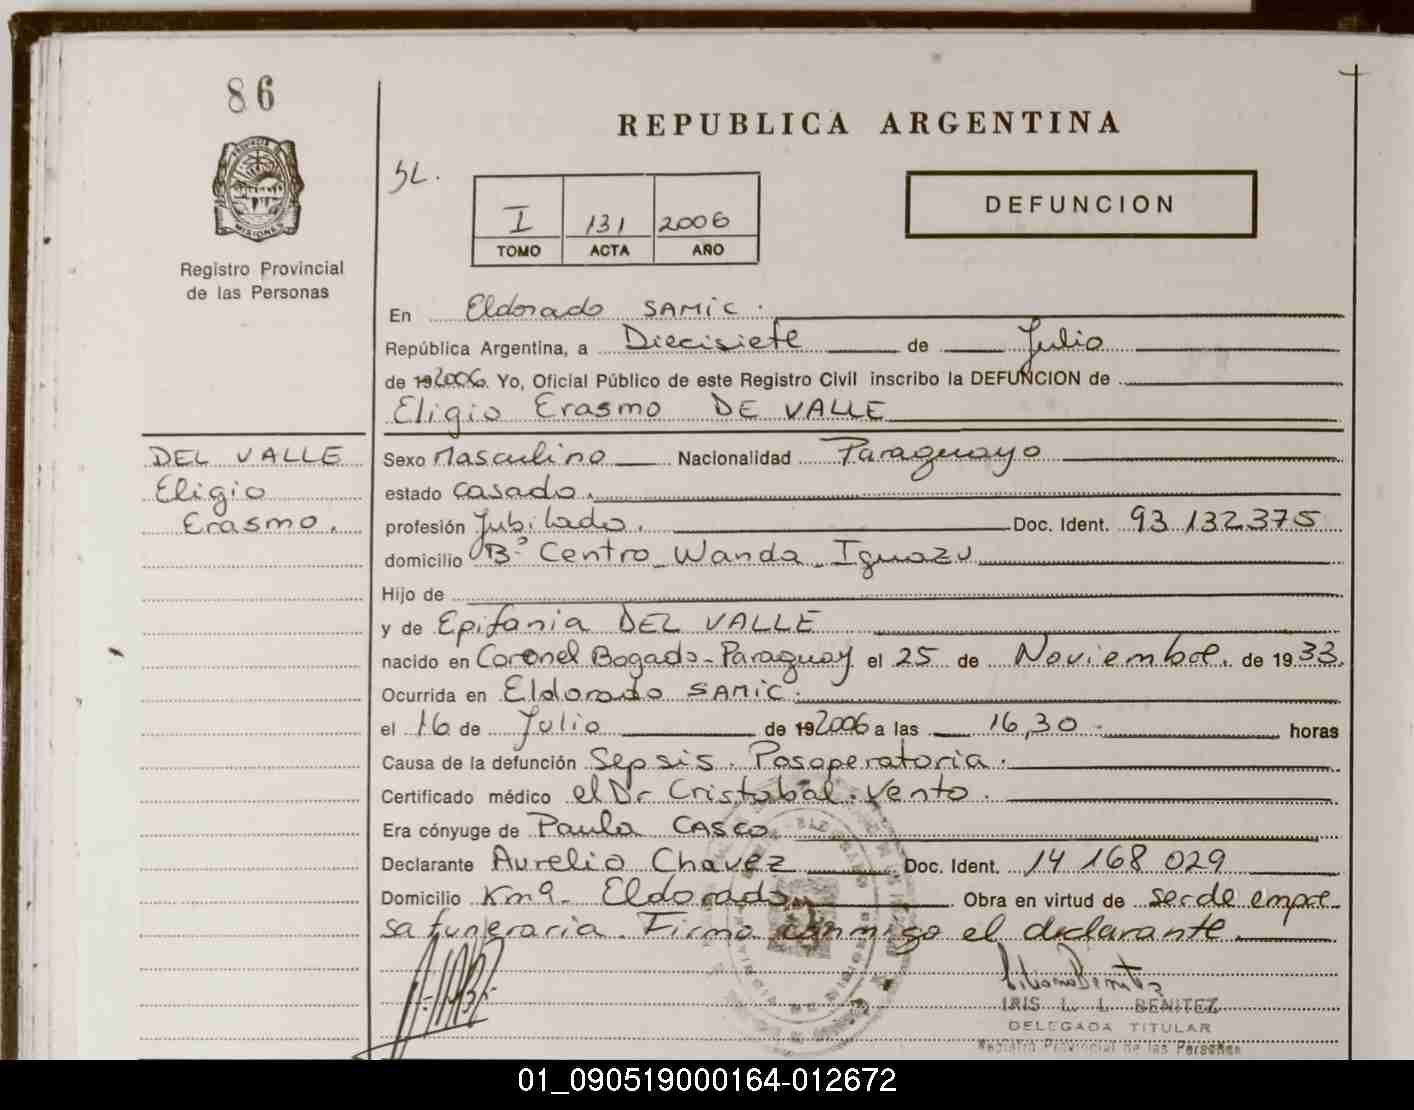 86
REPUBLICA ARGENTINA
SL.
I 131 2006
TOMO ACTA AÑO
DEFUNCION
MISIONES
Registro Provincial
de las Personas
En Eldorado SAMIC.
República Argentina, a Diecisiete de Julio
de 19 2006. Yo, Oficial Público de este Registro Civil inscribo la DEFUNCION de
Eligio Erasmo DE VALLE
DEL VALLE
Eligio
Erasmo.
Sexo Masculino Nacionalidad Paraguayo
estado casado.
profesión Jubilado. Doc. Ident. 93.132.375
domicilio Bº Centro - Wanda - Iguazu
Hijo de
y de Epifania DEL VALLE
nacido en Coronel Bogado - Paraguay el 25 de Noviembre. de 1933.
Ocurrida en Eldorado SAMIC.
el 16 de Julio de 19 2006 a las 16,30 - horas
Causa de la defunción Sepsis. Posoperatoria.
Certificado médico el Dr Cristobal. Vento.
Era cónyuge de Paula CASCO
Declarante Aurelio Chavez Doc. Ident. 14 168 029
Domicilio Km 9 - Eldorado Obra en virtud de ser de empre
sa funeraria. Firma conmigo el declarante.
IRIS L. L. BENITEZ
DELEGADA TITULAR
Registro Provincial de las Personas
01_090519000164-012672